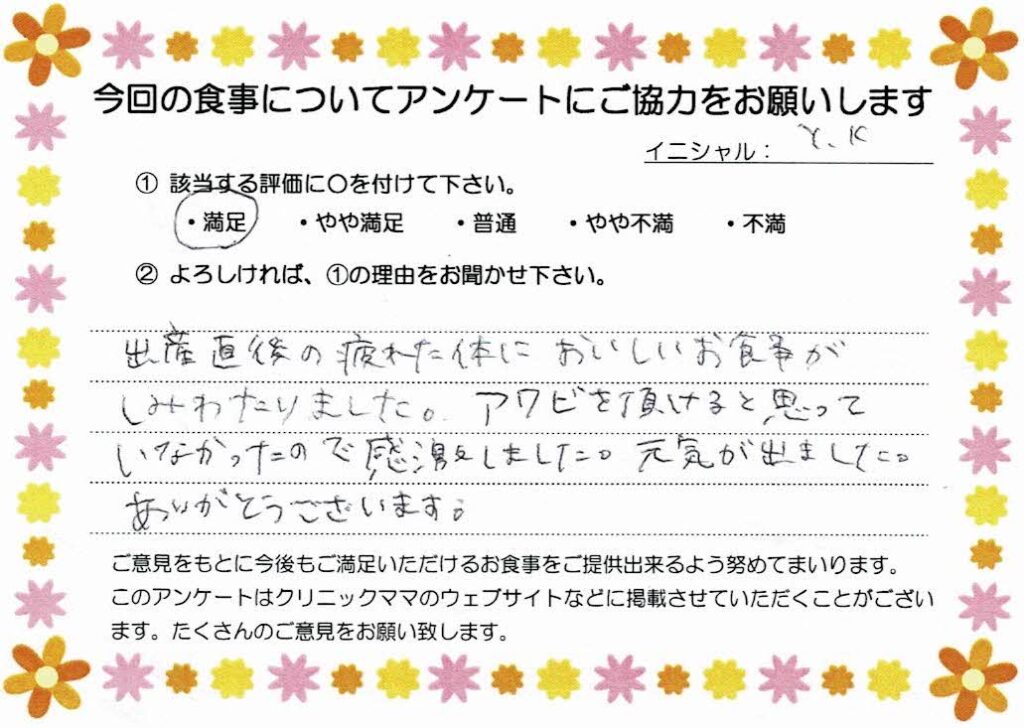 今回の食事についてアンケートにご協力をお願いします
イニシャル： Y.K
① 該当する評価に〇を付けて下さい。
・満足 ・やや満足 ・普通 ・やや不満 ・不満
② よろしければ、①の理由をお聞かせ下さい。
出産直後の疲れた体に おいしいお食事が
しみわたりました。アワビを頂けると思って
いなかったので感激をしました。元気が出ました。
ありがとうございます。
ご意見をもとに今後もご満足いただけるお食事をご提供出来るよう努めてまいります。
このアンケートはクリニックママのウェブサイトなどに掲載させていただくことがござい
ます。たくさんのご意見をお願い致します。